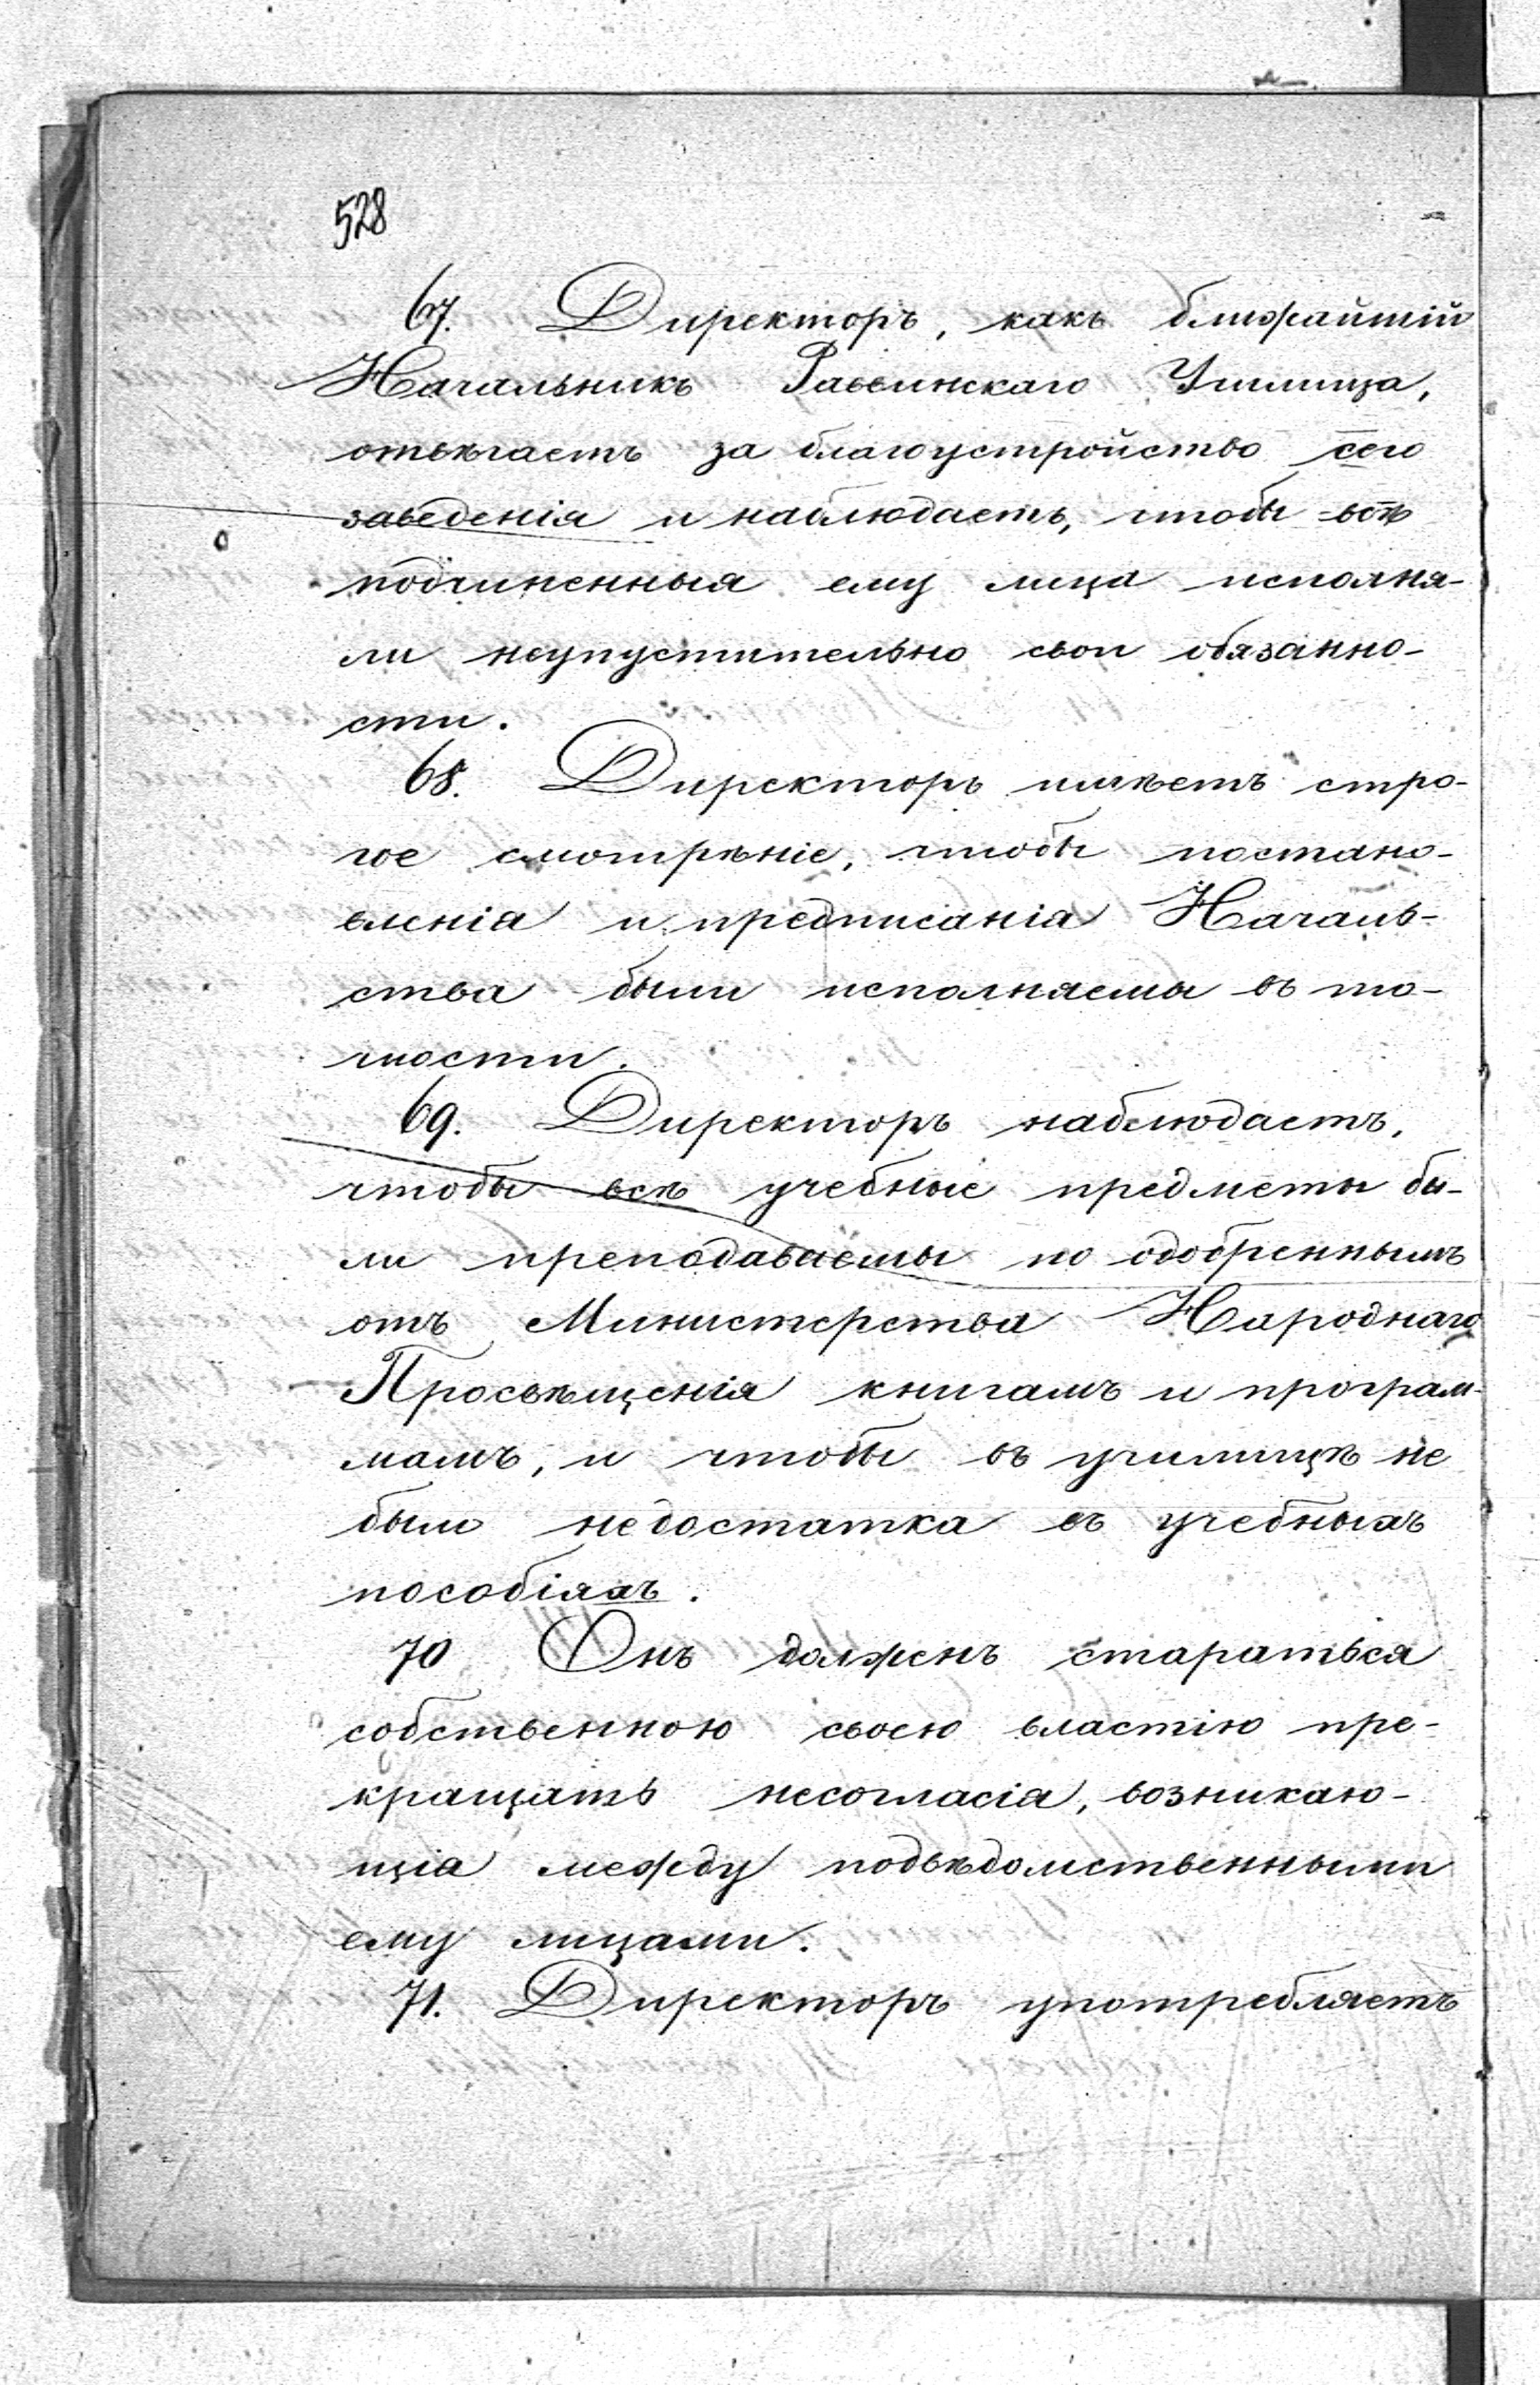 528
67. Директоръ, какъ ближайшій
Начальникъ Раввинскаго Училища,
отвѣчаетъ за благоустройство сего
заведенія и наблюдаетъ, чтобы всѣ
подчиненныя ему лица исполня-
ли неупустительно свои обязанно-
сти.
68. Директоръ имѣетъ стро-
гое смотрѣніе, чтобы постано-
вленія и предписанія Началь-
ства были исполняемы въ то-
чности.
69. Директоръ наблюдаетъ,
чтобы всѣ учебные предметы бы-
ли преподаваемы по одобреннымъ
отъ Министерства Народнаго
Просвѣщенія книгамъ и програм-
мамъ, и чтобы въ училищѣ не
было недостатка въ учебныхъ
пособіяхъ.
70 Онъ долженъ стараться
собственною своею властію пре-
кращать несогласія, возникаю-
щія между подвѣдомственными
ему лицами.
71. Директоръ употребляетъ